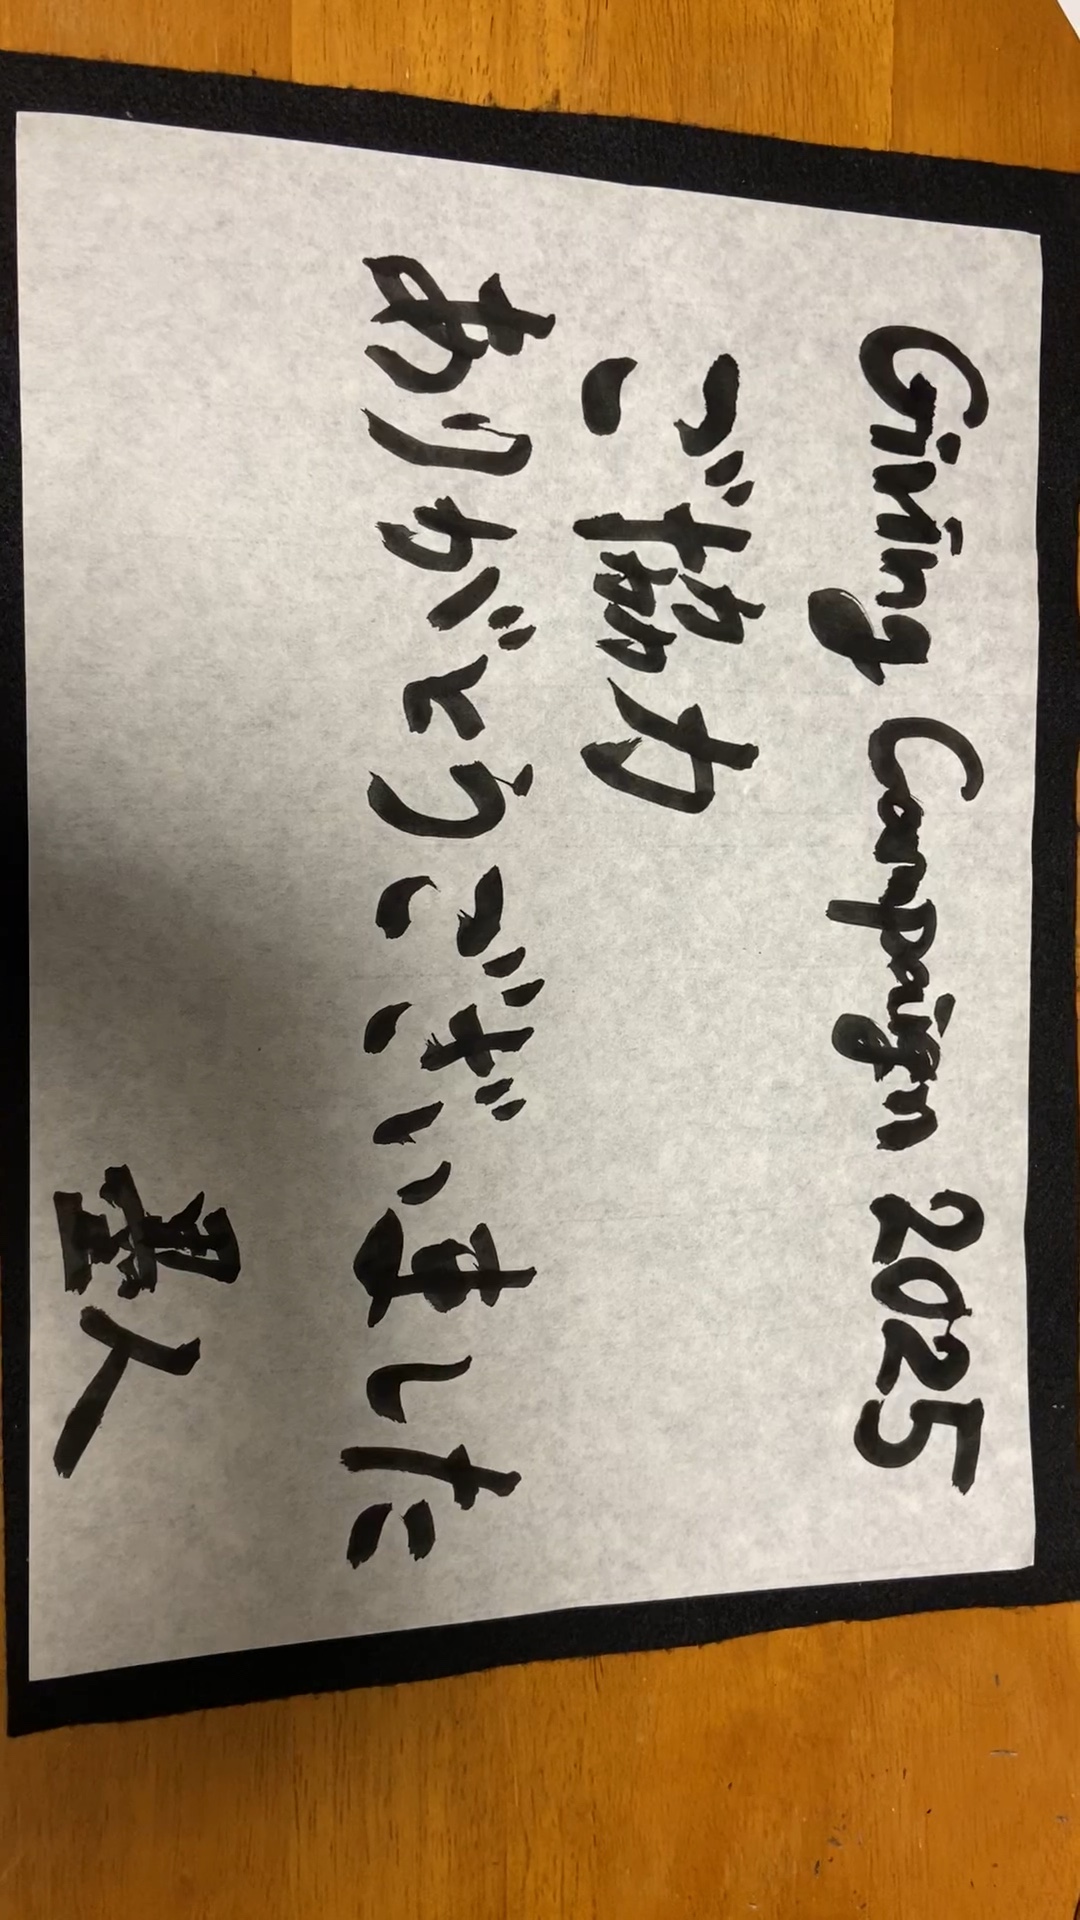 Giving Campaign 2025
ご協力
ありがとうございました
墨人